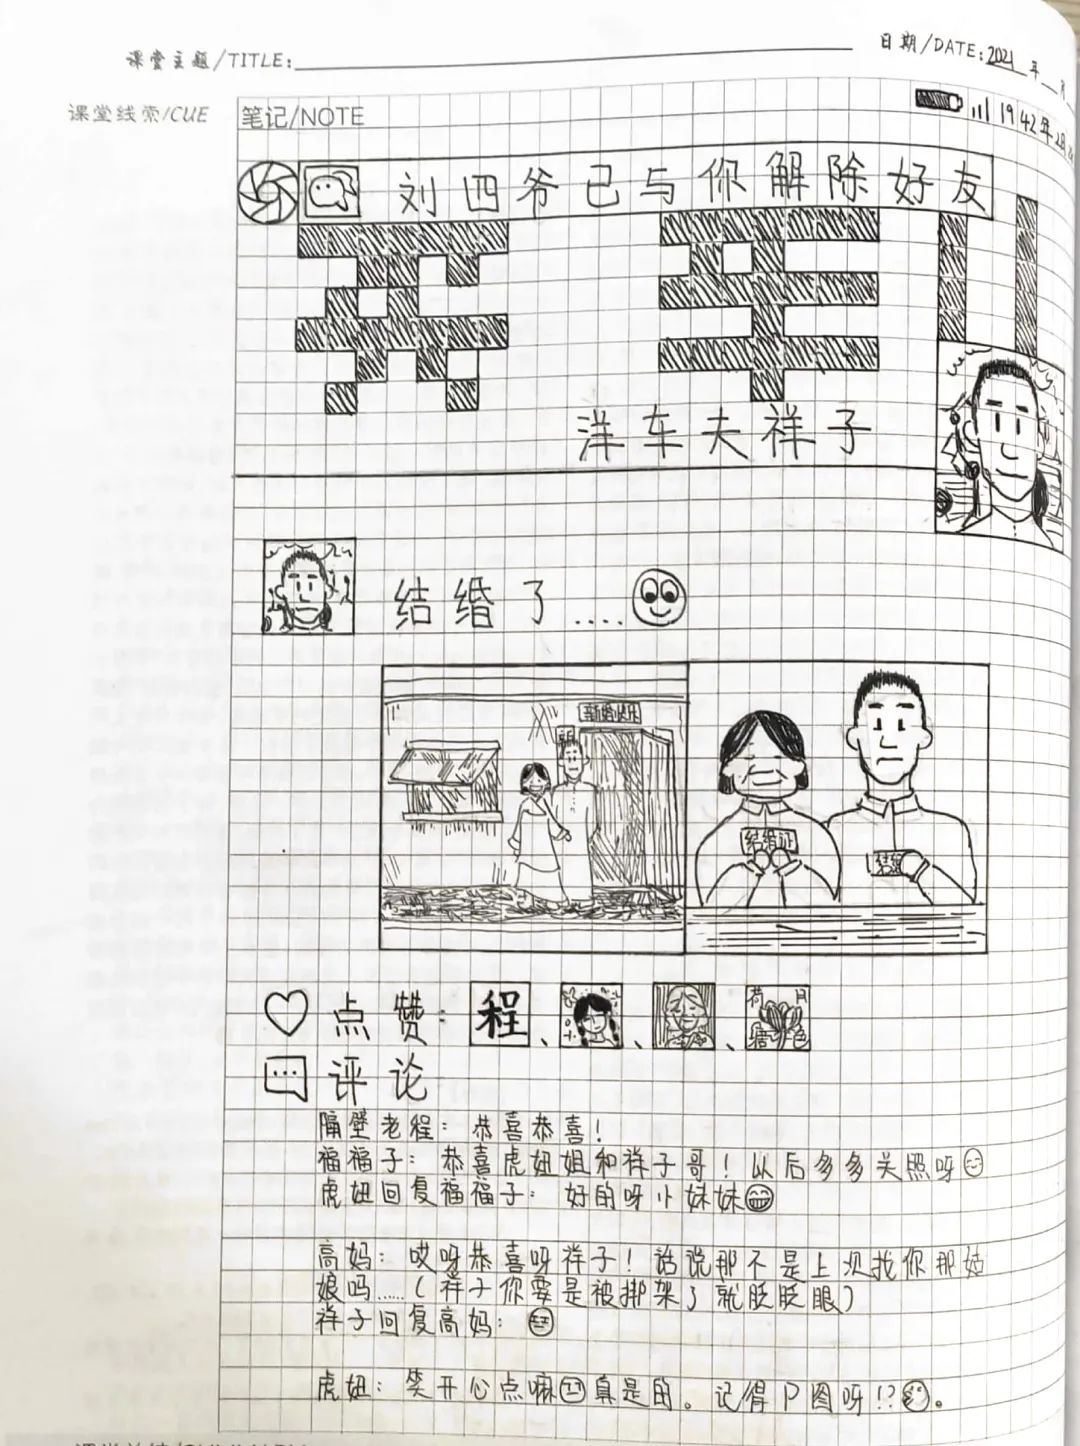 课堂主题/TITLE:
日期/DATE:2021年 月
课堂线索/CUE
笔记/NOTE
1942年2月
刘四爷已与你解除好友
洋车夫祥子
结婚了....
新婚快乐
结婚证
结婚
点赞:
程、
荷 月
塘 色
评论
隔壁老程:恭喜恭喜!
福福子:恭喜虎妞姐和祥子哥!以后多多关照呀
虎妞回复福福子:好的呀小妹妹
高妈:哎呀恭喜呀祥子!话说那不是上次找你那姑
娘吗……(祥子你要是被绑架了就眨眨眼)
祥子回复高妈:
虎妞:笑开心点嘛 真是的。记得P图呀!?。